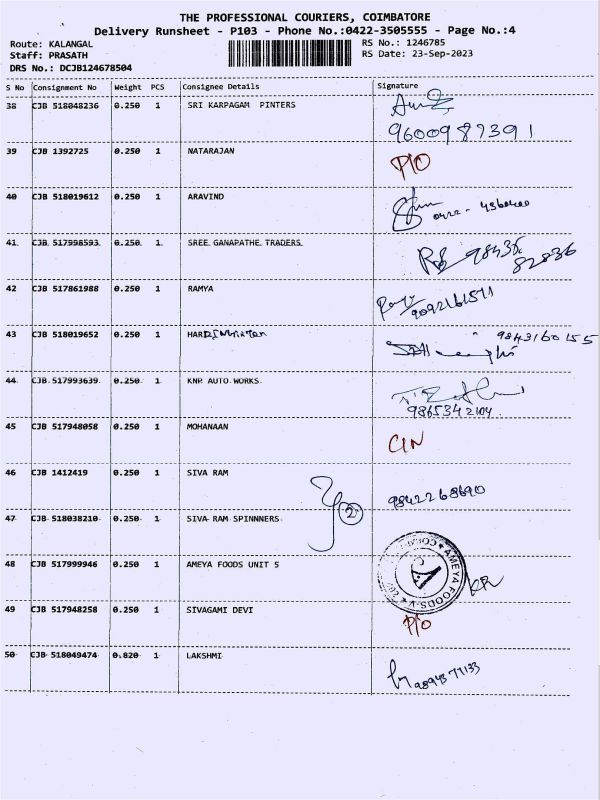 THE PROFESSIONAL COURIERS, COIMBATORE
Delivery Runsheet - P103 - Phone No.:0422-3505555 - Page No.:4
Route: KALANGAL RS No.: 1246785
Staff: PRASATH RS Date: 23-Sep-2023
DRS No.: DCJB124678504
S No Consignment No Weight PCS Consignee Details Signature
38 CJB 518048236 0.250 1 SRI KARPAGAM PINTERS
9600987391
39 CJB 1392725 0.250 1 NATARAJAN P/O
40 CJB 518019612 0.250 1 ARAVIND
41 CJB 517998593 0.250 1 SREE GANAPATHE TRADERS 98435
82836
42 CJB 517861988 0.250 1 RAMYA
9092161571
43 CJB 518019652 0.250 1 HARD 9843160155
44 CJB 517993639 0.250 1 KNR AUTO WORKS
9865342104
45 CJB 517948058 0.250 1 MOHANAAN C/N
46 CJB 1412419 0.250 1 SIVA RAM 9842268690
2
47 CJB 518038210 0.250 1 SIVA RAM SPINNNERS
48 CJB 517999946 0.250 1 AMEYA FOODS UNIT 5
AMEYA FOODS
49 CJB 517948258 0.250 1 SIVAGAMI DEVI P/O
50 CJB 518049474 0.820 1 LAKSHMI 9894377133